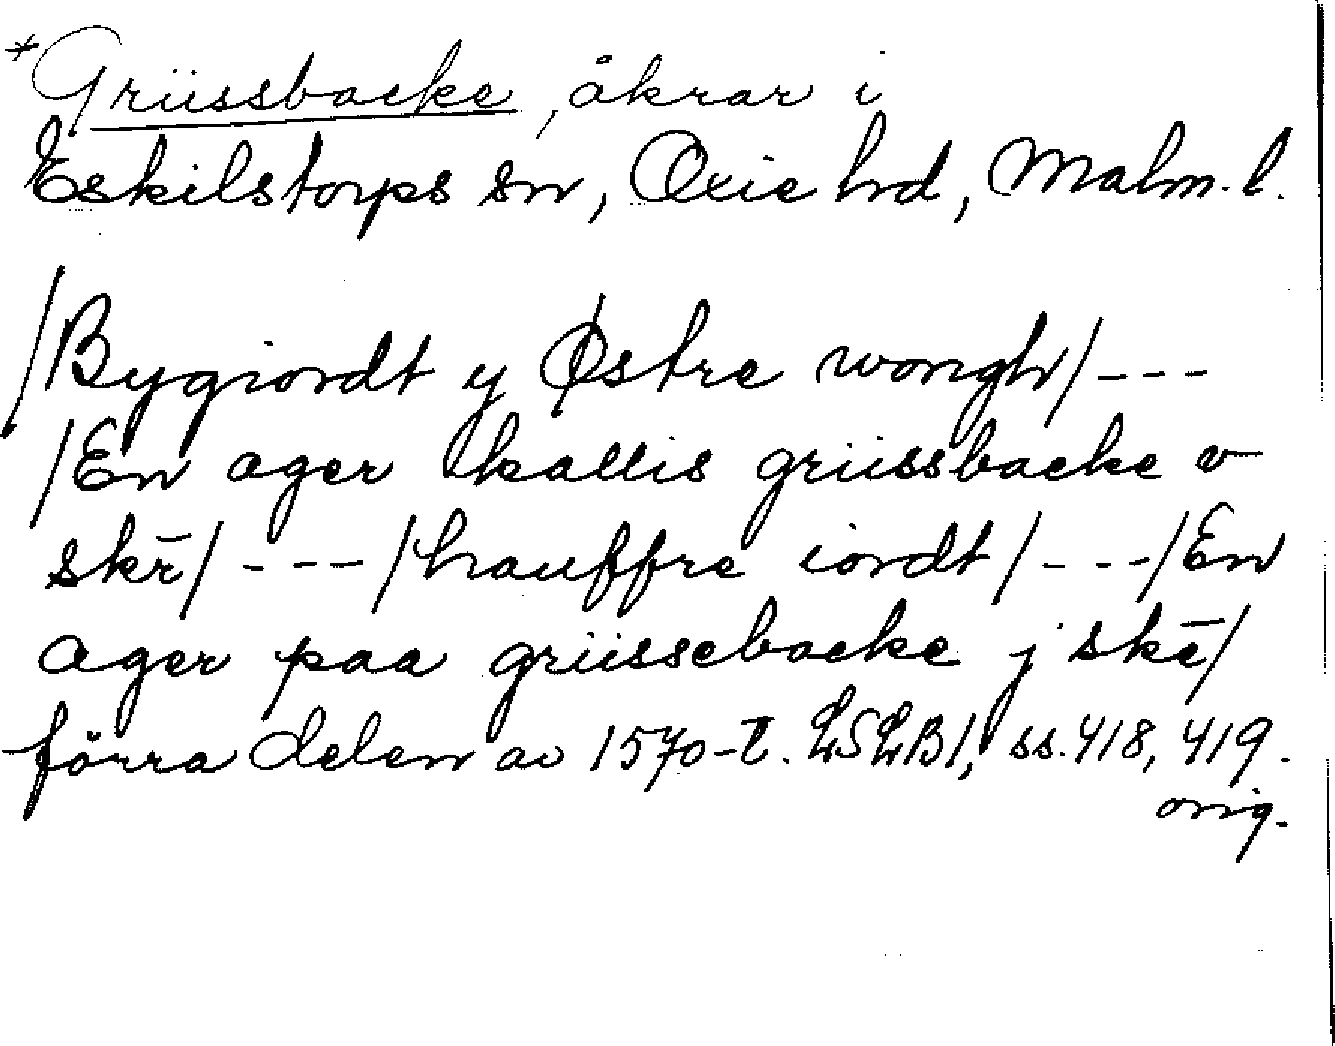 *Grüssbacke, åkrar i
Eskilstorps sn, Oxie hd, Malm. l.
/Bygiordt y Østre wongh/---
/En ager kallis grüssbacke v
skē/---/hauffre iordt/---/En
ager paa grüssebacke j skē/
förra delen av 1570-t. LSLB1, ss. 418, 419.
orig.